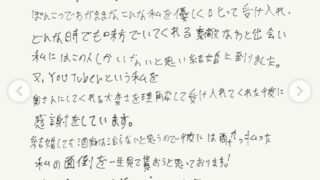 ぽんこつでわがままなこんな私を優しく口説って受け入れ、
どんな時でも味方でいてくれる素敵な方と出会い
私にはこの人しかいないと思い結婚に至りました。
又、YouTuberという私を
奥さんにしてくれる大変さを理解して受け入れてくれた彼に
感謝をしています。
結婚しても酒癖は治らないと思うので彼には酔っぱらった
私の面倒を一生見て貰おうと思っております!